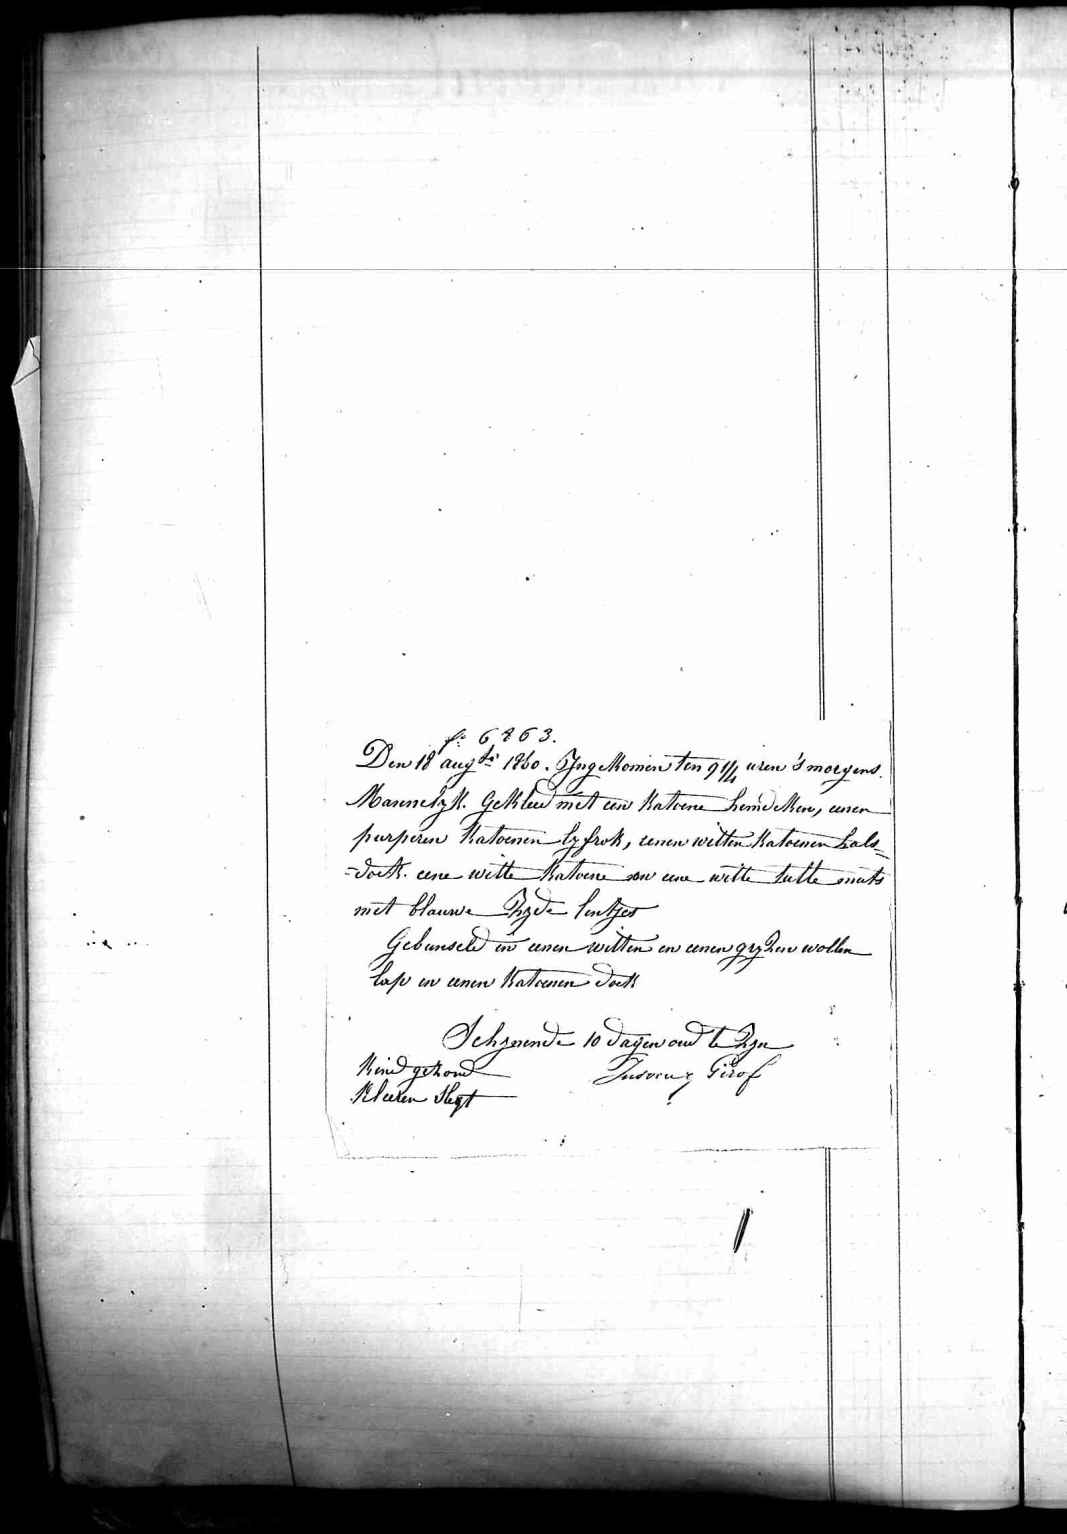 f° 6863.
Den 18 aug.te 1860. Ingekomen ten 9 1/4 uren 's morgens.
Mannelyk. Gekleed met een katoene hemdeken, eenen
purperen katoenen lyfrok, eenen witten katoenen hals=
=doek. eene witte katoene en eene witte tulle muts
met blauwe zyde lintjes
Gebunseld in eenen witten en eenen gryzen wollen
lap en eenen katoenen doek
Schynende 10 dagen oud te zyn
Kind gezond
Kleeren slegt